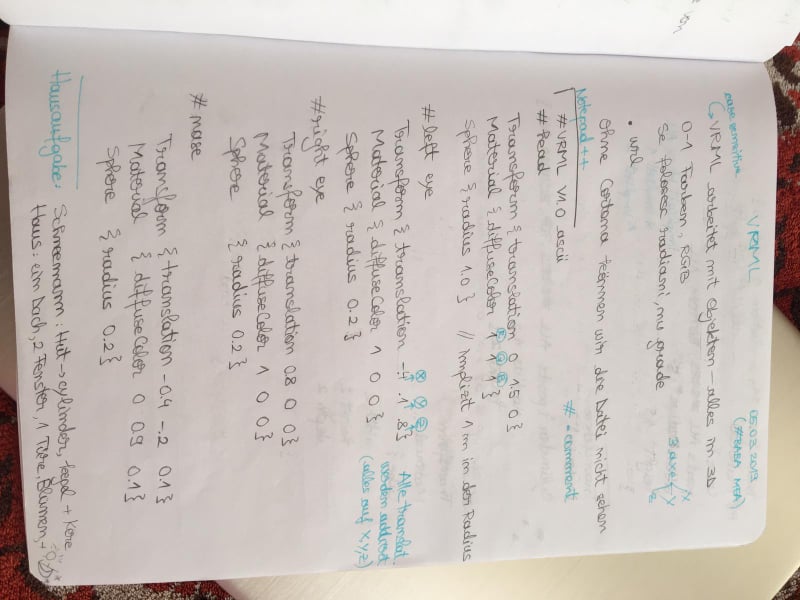 VRML 05.03.2019
case sensitive (#BABA MEA)
VRML arbeitet mit Objekten - alles in 3D
0-1 Farben, RGB
3 axe X Y Z
Se folosesc radiani, nu grade
. wrl
Ohne Cortona können wir die Datei nicht sehen
Notepad++
# - comment
#VRML V1.0 ascii
# Head
Transform { translation 0 1.5 0 }
R G B
Material { diffuseColor 1 1 1 }
Sphere { radius 1.0 } // Implizit 1 m in der Radius
# left eye
X Y Z
Transform { translation -.4 .1 .8 }
Material { diffuseColor 1 0 0 }
Sphere { radius 0.2 }
Alle translat.
werden addiert
(alles auf X,Y,Z)
#right eye
Transform { translation 0.8 0 0 }
Material { diffuseColor 1 0 0 }
Sphere { radius 0.2 }
# nase
Transform { translation -0.4 -.2 0.1 }
Material { diffuseColor 0 0.9 0.1 }
Sphere { radius 0.2 }
Hausaufgabe: Schneemann: Hut → cylinder, kegel +
Haus: ein Dach, 2 Fenster, 1 Türe, Blumen, +